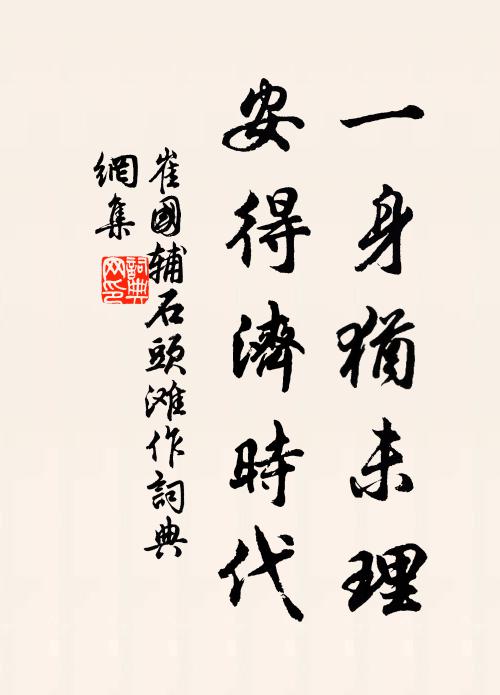 一身猶未理
安得濟時代
崔國輔石頭滩作詞典
網集
詞典網印